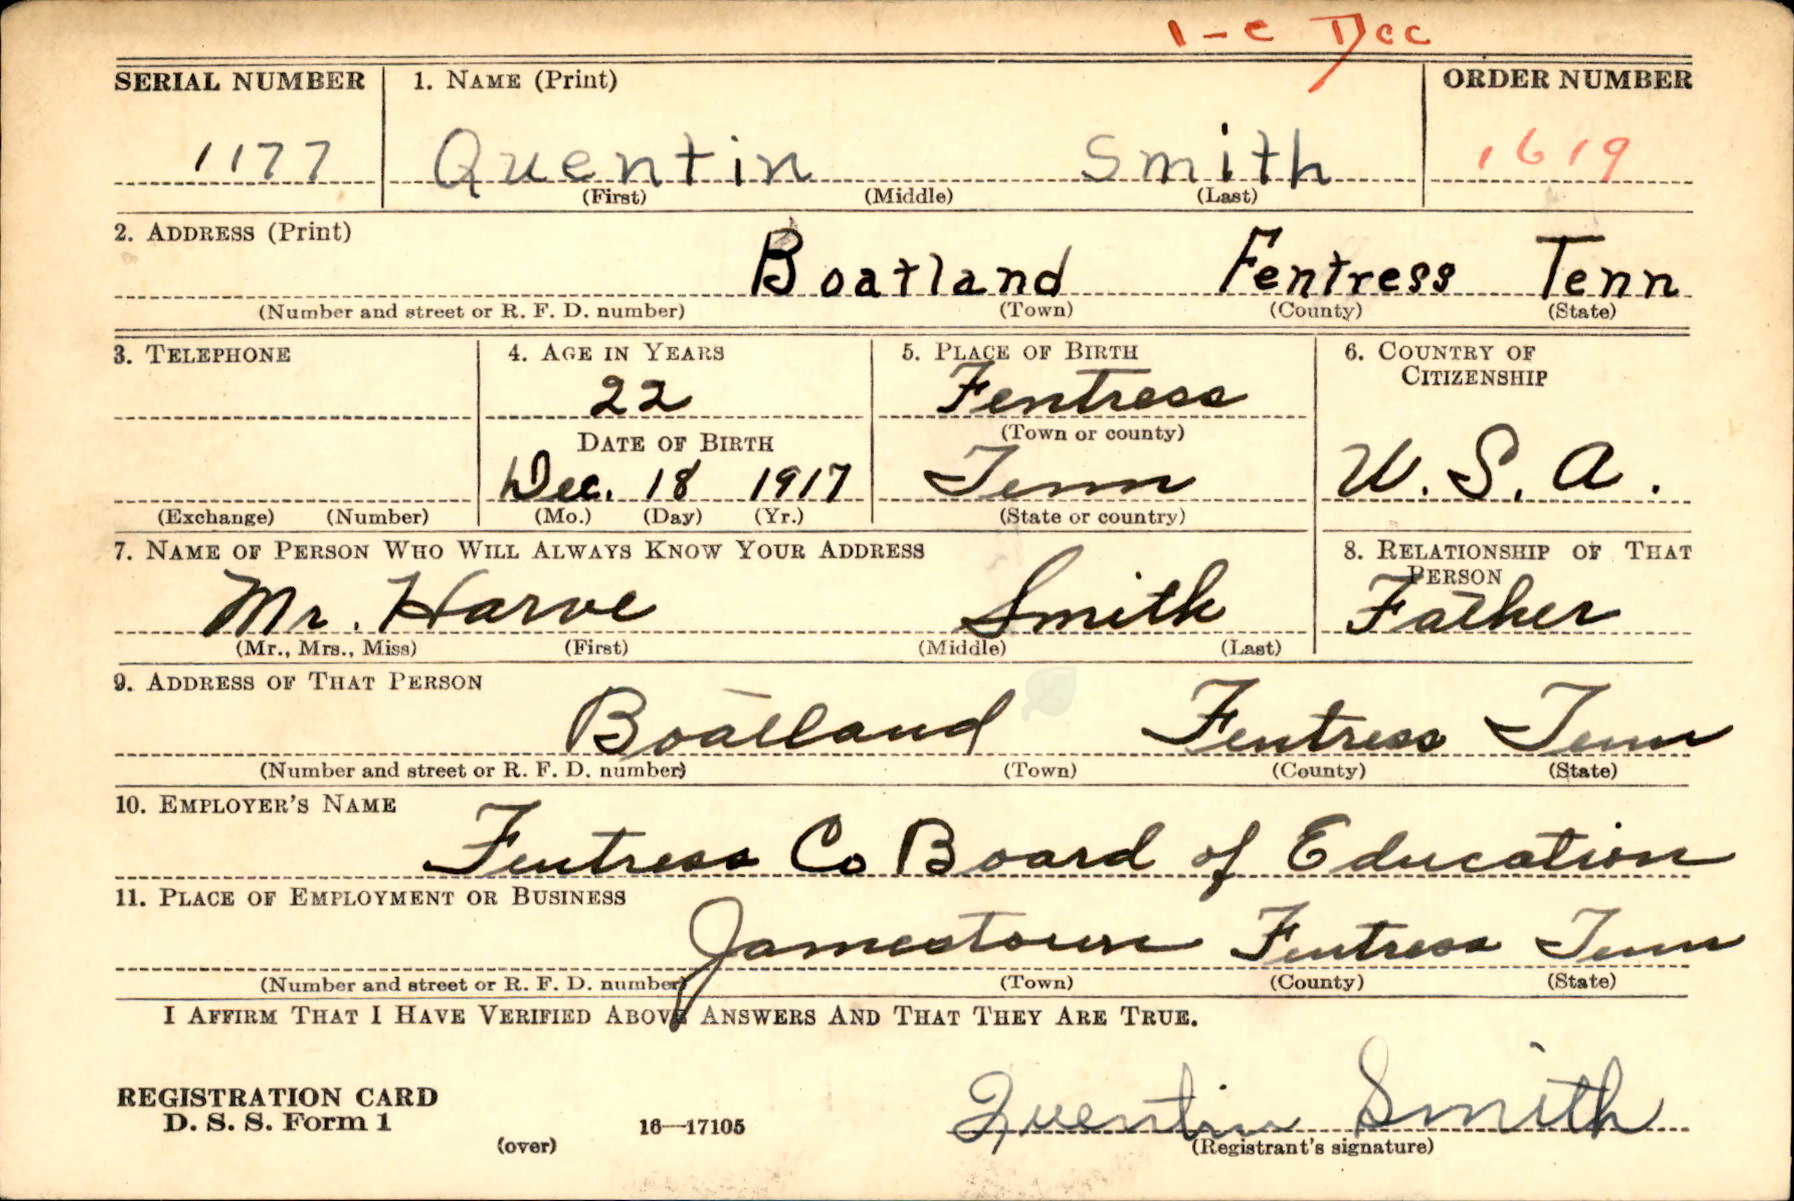 1-C Dec
SERIAL NUMBER 1. NAME (Print) ORDER NUMBER
1177 Quentin Smith 1619
(First) (Middle) (Last)
2. ADDRESS (Print)
Boatland Fentress Tenn
(Number and street or R. F. D. number) (Town) (County) (State)
3. TELEPHONE 4. AGE IN YEARS 5. PLACE OF BIRTH 6. COUNTRY OF
CITIZENSHIP
22 Fentress
DATE OF BIRTH (Town or county)
Dec. 18 1917 Tenn U. S. A.
(Exchange) (Number) (Mo.) (Day) (Yr.) (State or country)
7. NAME OF PERSON WHO WILL ALWAYS KNOW YOUR ADDRESS 8. RELATIONSHIP OF THAT
PERSON
Mr. Harve Smith Father
(Mr., Mrs., Miss) (First) (Middle) (Last)
9. ADDRESS OF THAT PERSON
Boatland Fentress Tenn
(Number and street or R. F. D. number) (Town) (County) (State)
10. EMPLOYER'S NAME
Fentress Co Board of Education
11. PLACE OF EMPLOYMENT OR BUSINESS
Jamestown Fentress Tenn
(Number and street or R. F. D. number) (Town) (County) (State)
I AFFIRM THAT I HAVE VERIFIED ABOVE ANSWERS AND THAT THEY ARE TRUE.
REGISTRATION CARD
D. S. S. Form 1 Quentin Smith
(over) 16—17105 (Registrant's signature)